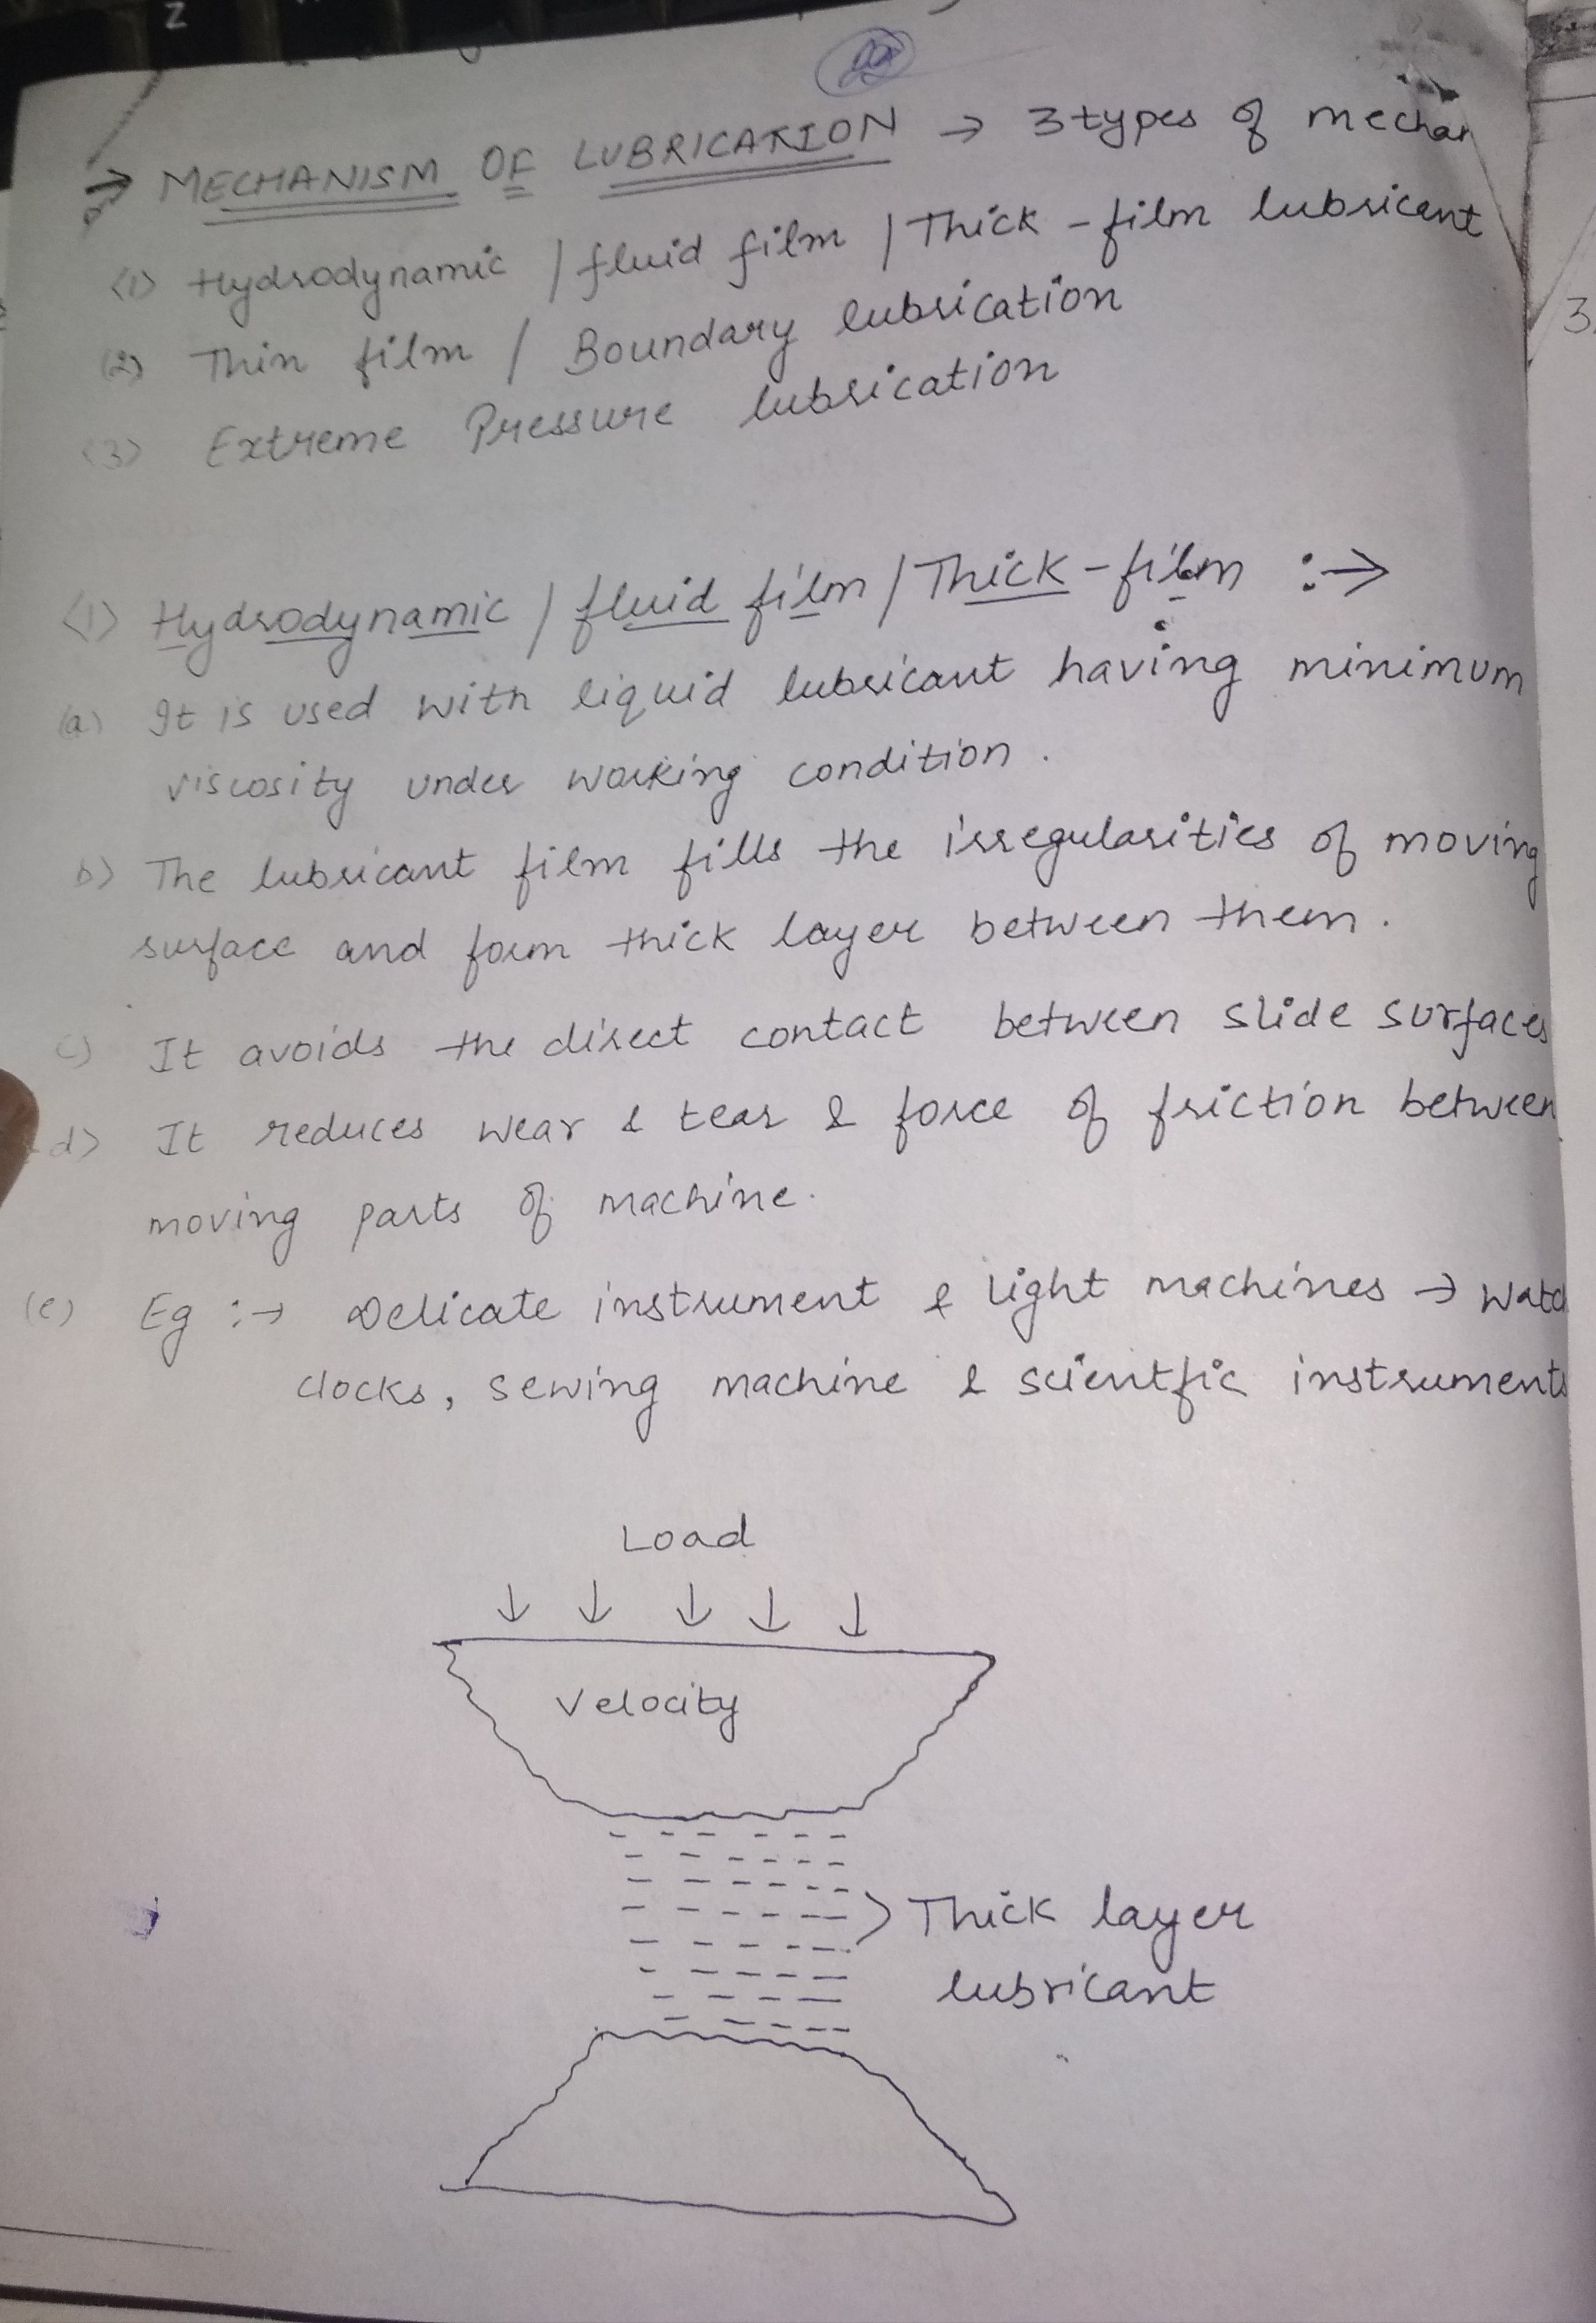 ⇒ MECHANISM OF LUBRICATION → 3 types of mechan
(1) Hydrodynamic / fluid film / Thick - film lubricant
(2) Thin film / Boundary lubrication
(3) Extreme Pressure lubrication
3
(1) Hydrodynamic / fluid film / Thick - film :→
(a) It is used with liquid lubricant having minimum
viscosity under working condition.
b) The lubricant film fills the irregularities of moving
surface and form thick layer between them.
c) It avoids the direct contact between slide surfaces
d) It reduces wear & tear & force of friction between
moving parts of machine.
(e) Eg :→ Delicate instrument & light machines → Watc
clocks, sewing machine & scientfic instruments
Load
Velocity
Thick layer
lubricant